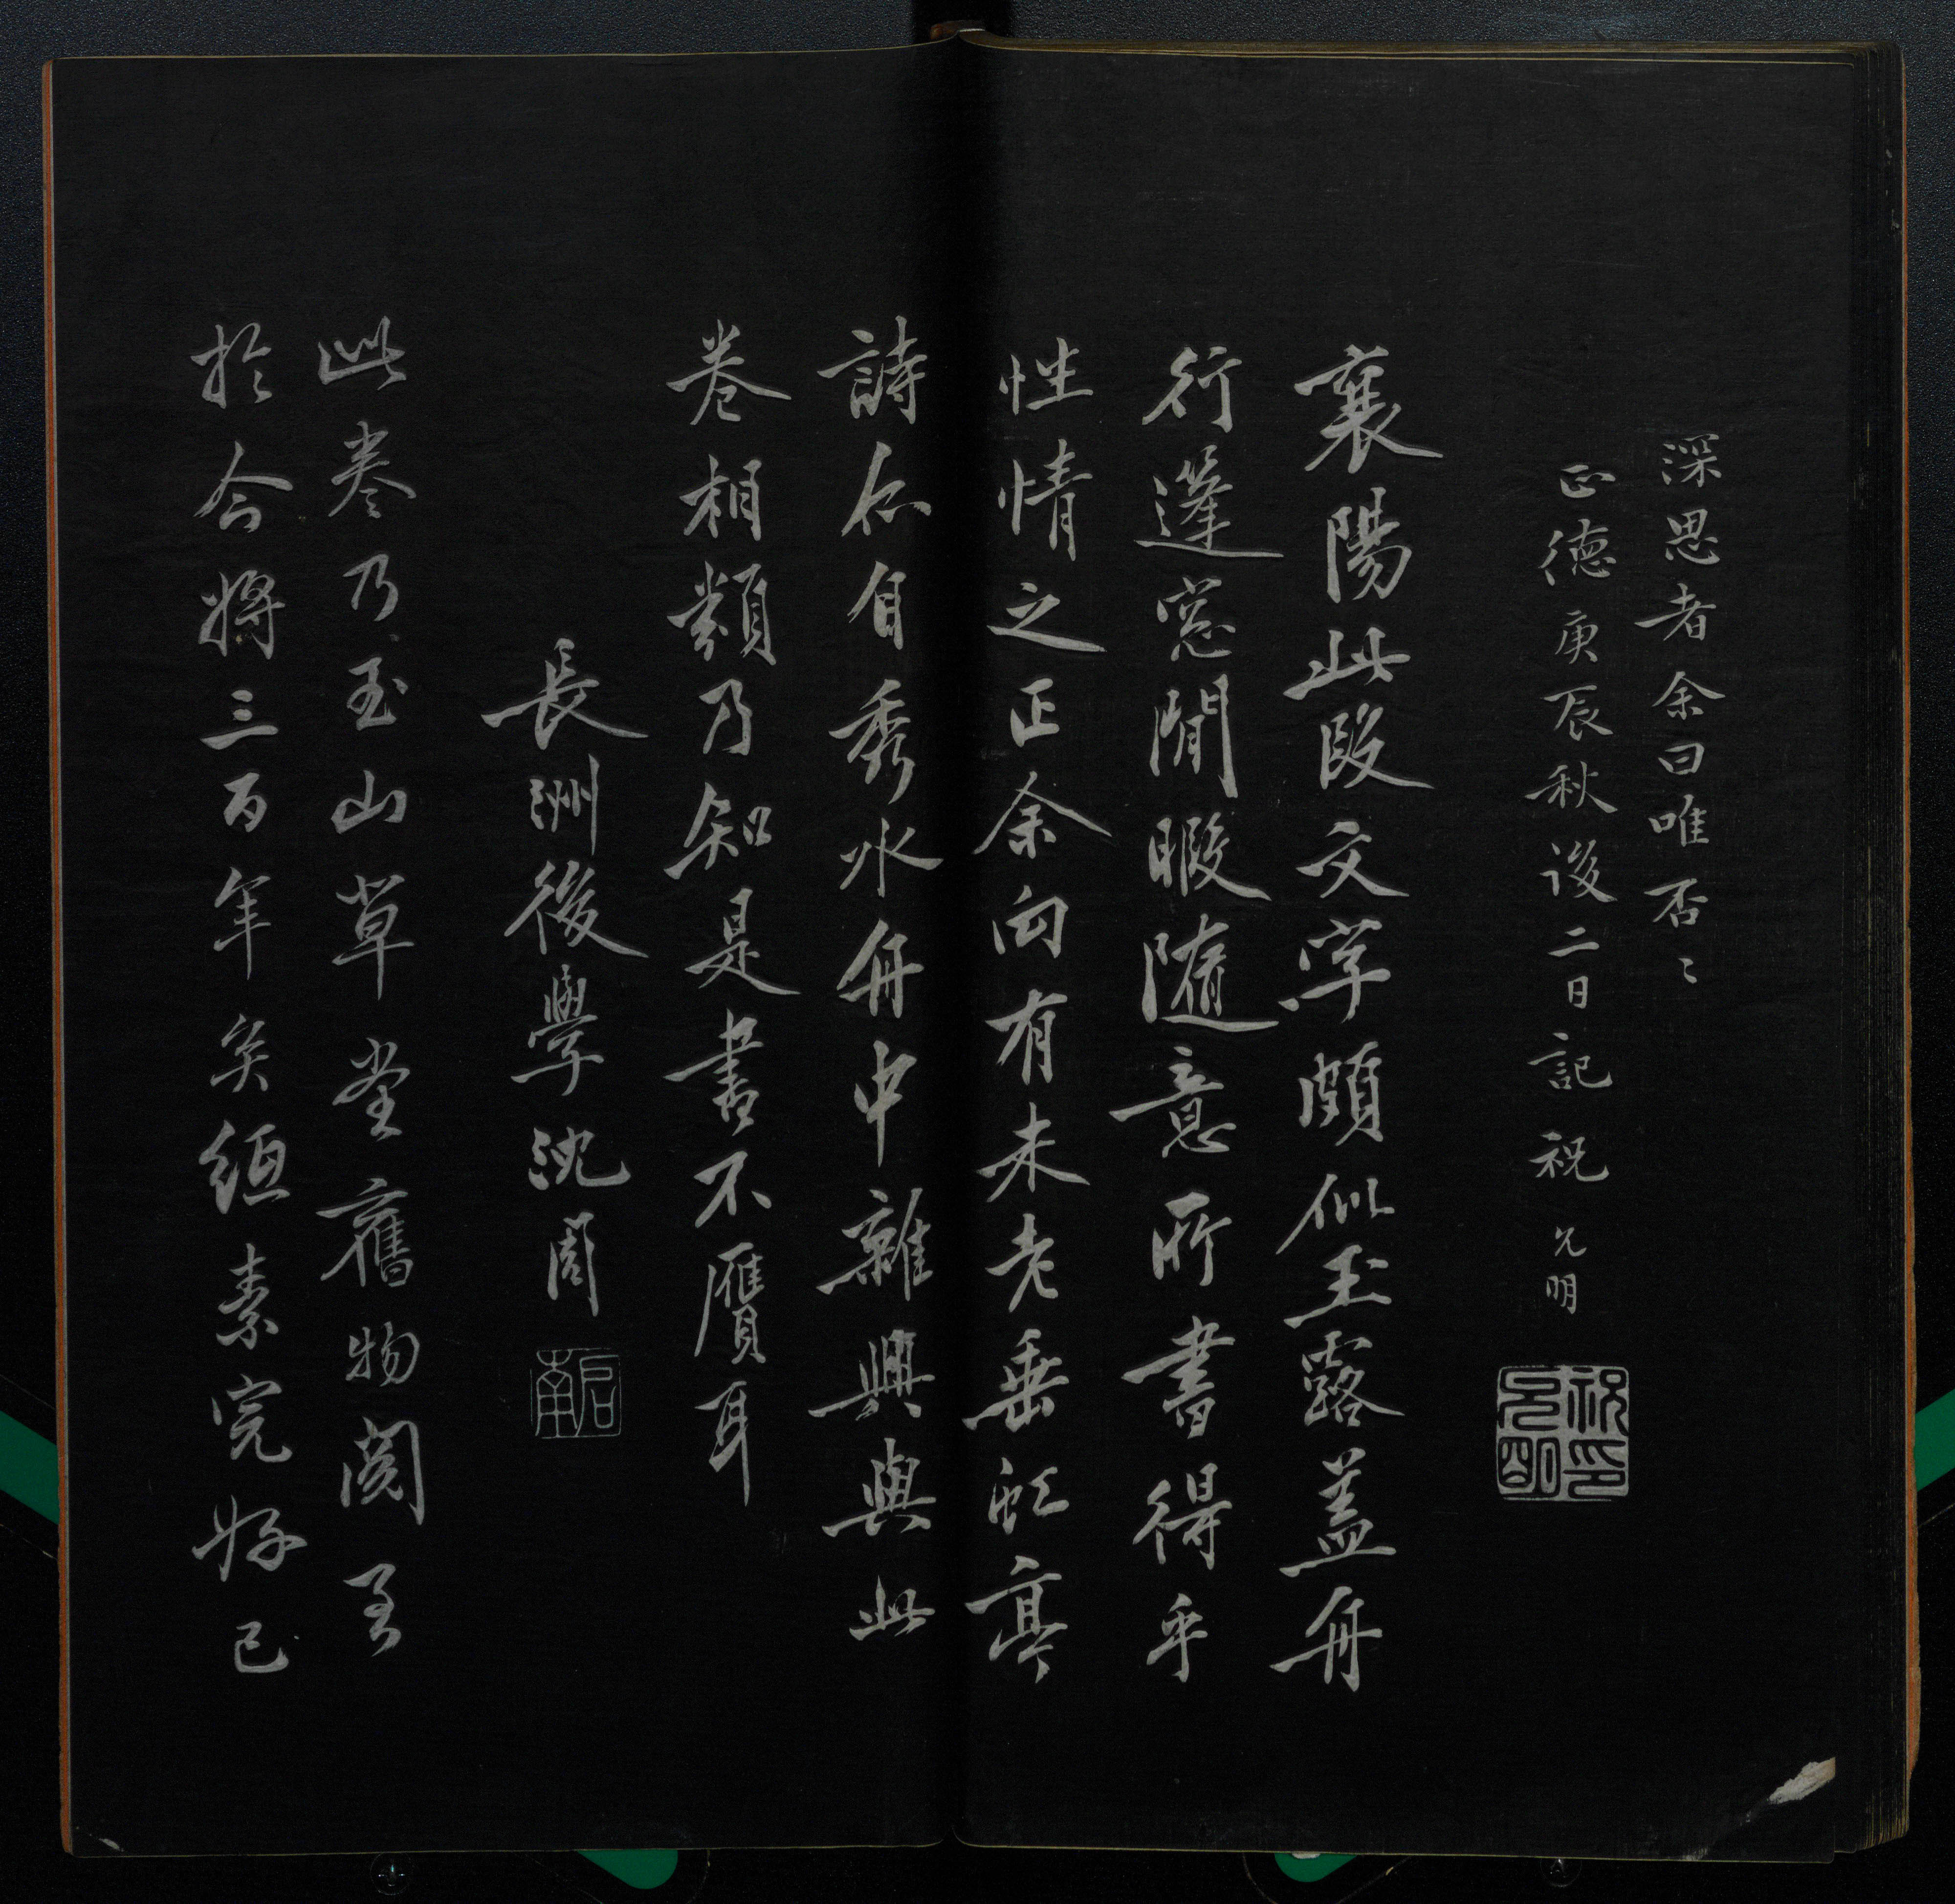 深思者余曰唯否〻
正德庚辰秋後二日記祝允明
祝允明印
襄陽此段文字頗似玉露蓋舟
行篷窓閒暇隨意所書得乎
性情之正余向有未老垂虹亭
詩尒自秀水舟中雜興與此
卷相類乃知是書不贗耳
長洲後學沈周
啟南
此卷乃玉山草堂舊物閱至
於今將三百年矣絙素完好已